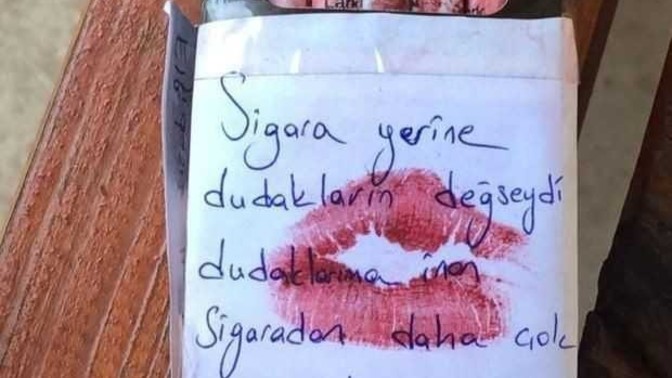 Sigara yerine
dudakların değseydi
dudaklarıma inan
Sigaradan daha çok